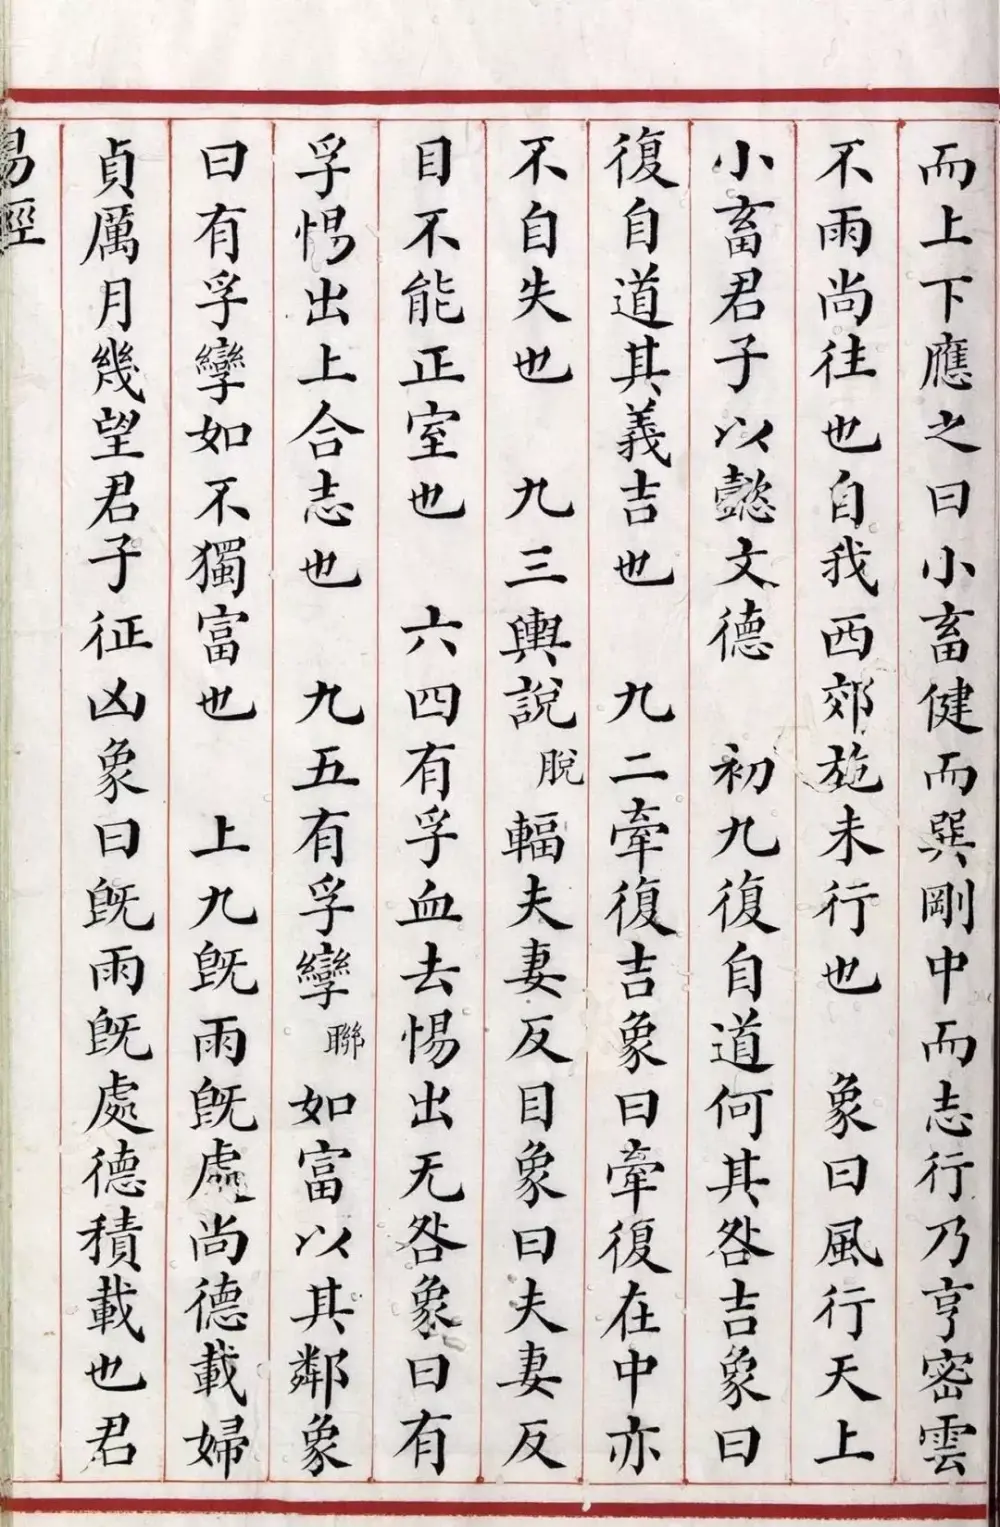 而上下應之曰小畜健而巽剛中而志行乃亨密雲
不雨尚往也自我西郊施未行也 象曰風行天上
小畜君子以懿文德 初九復自道何其咎吉象曰
復自道其義吉也 九二牽復吉象曰牽復在中亦
不自失也 九三輿說脫輻夫妻反目象曰夫妻反
目不能正室也 六四有孚血去惕出无咎象曰有
孚惕出上合志也 九五有孚攣聯如富以其鄰象
曰有孚攣如不獨富也 上九既雨既處尚德載婦
貞厲月幾望君子征凶象曰既雨既處德積載也君
易經